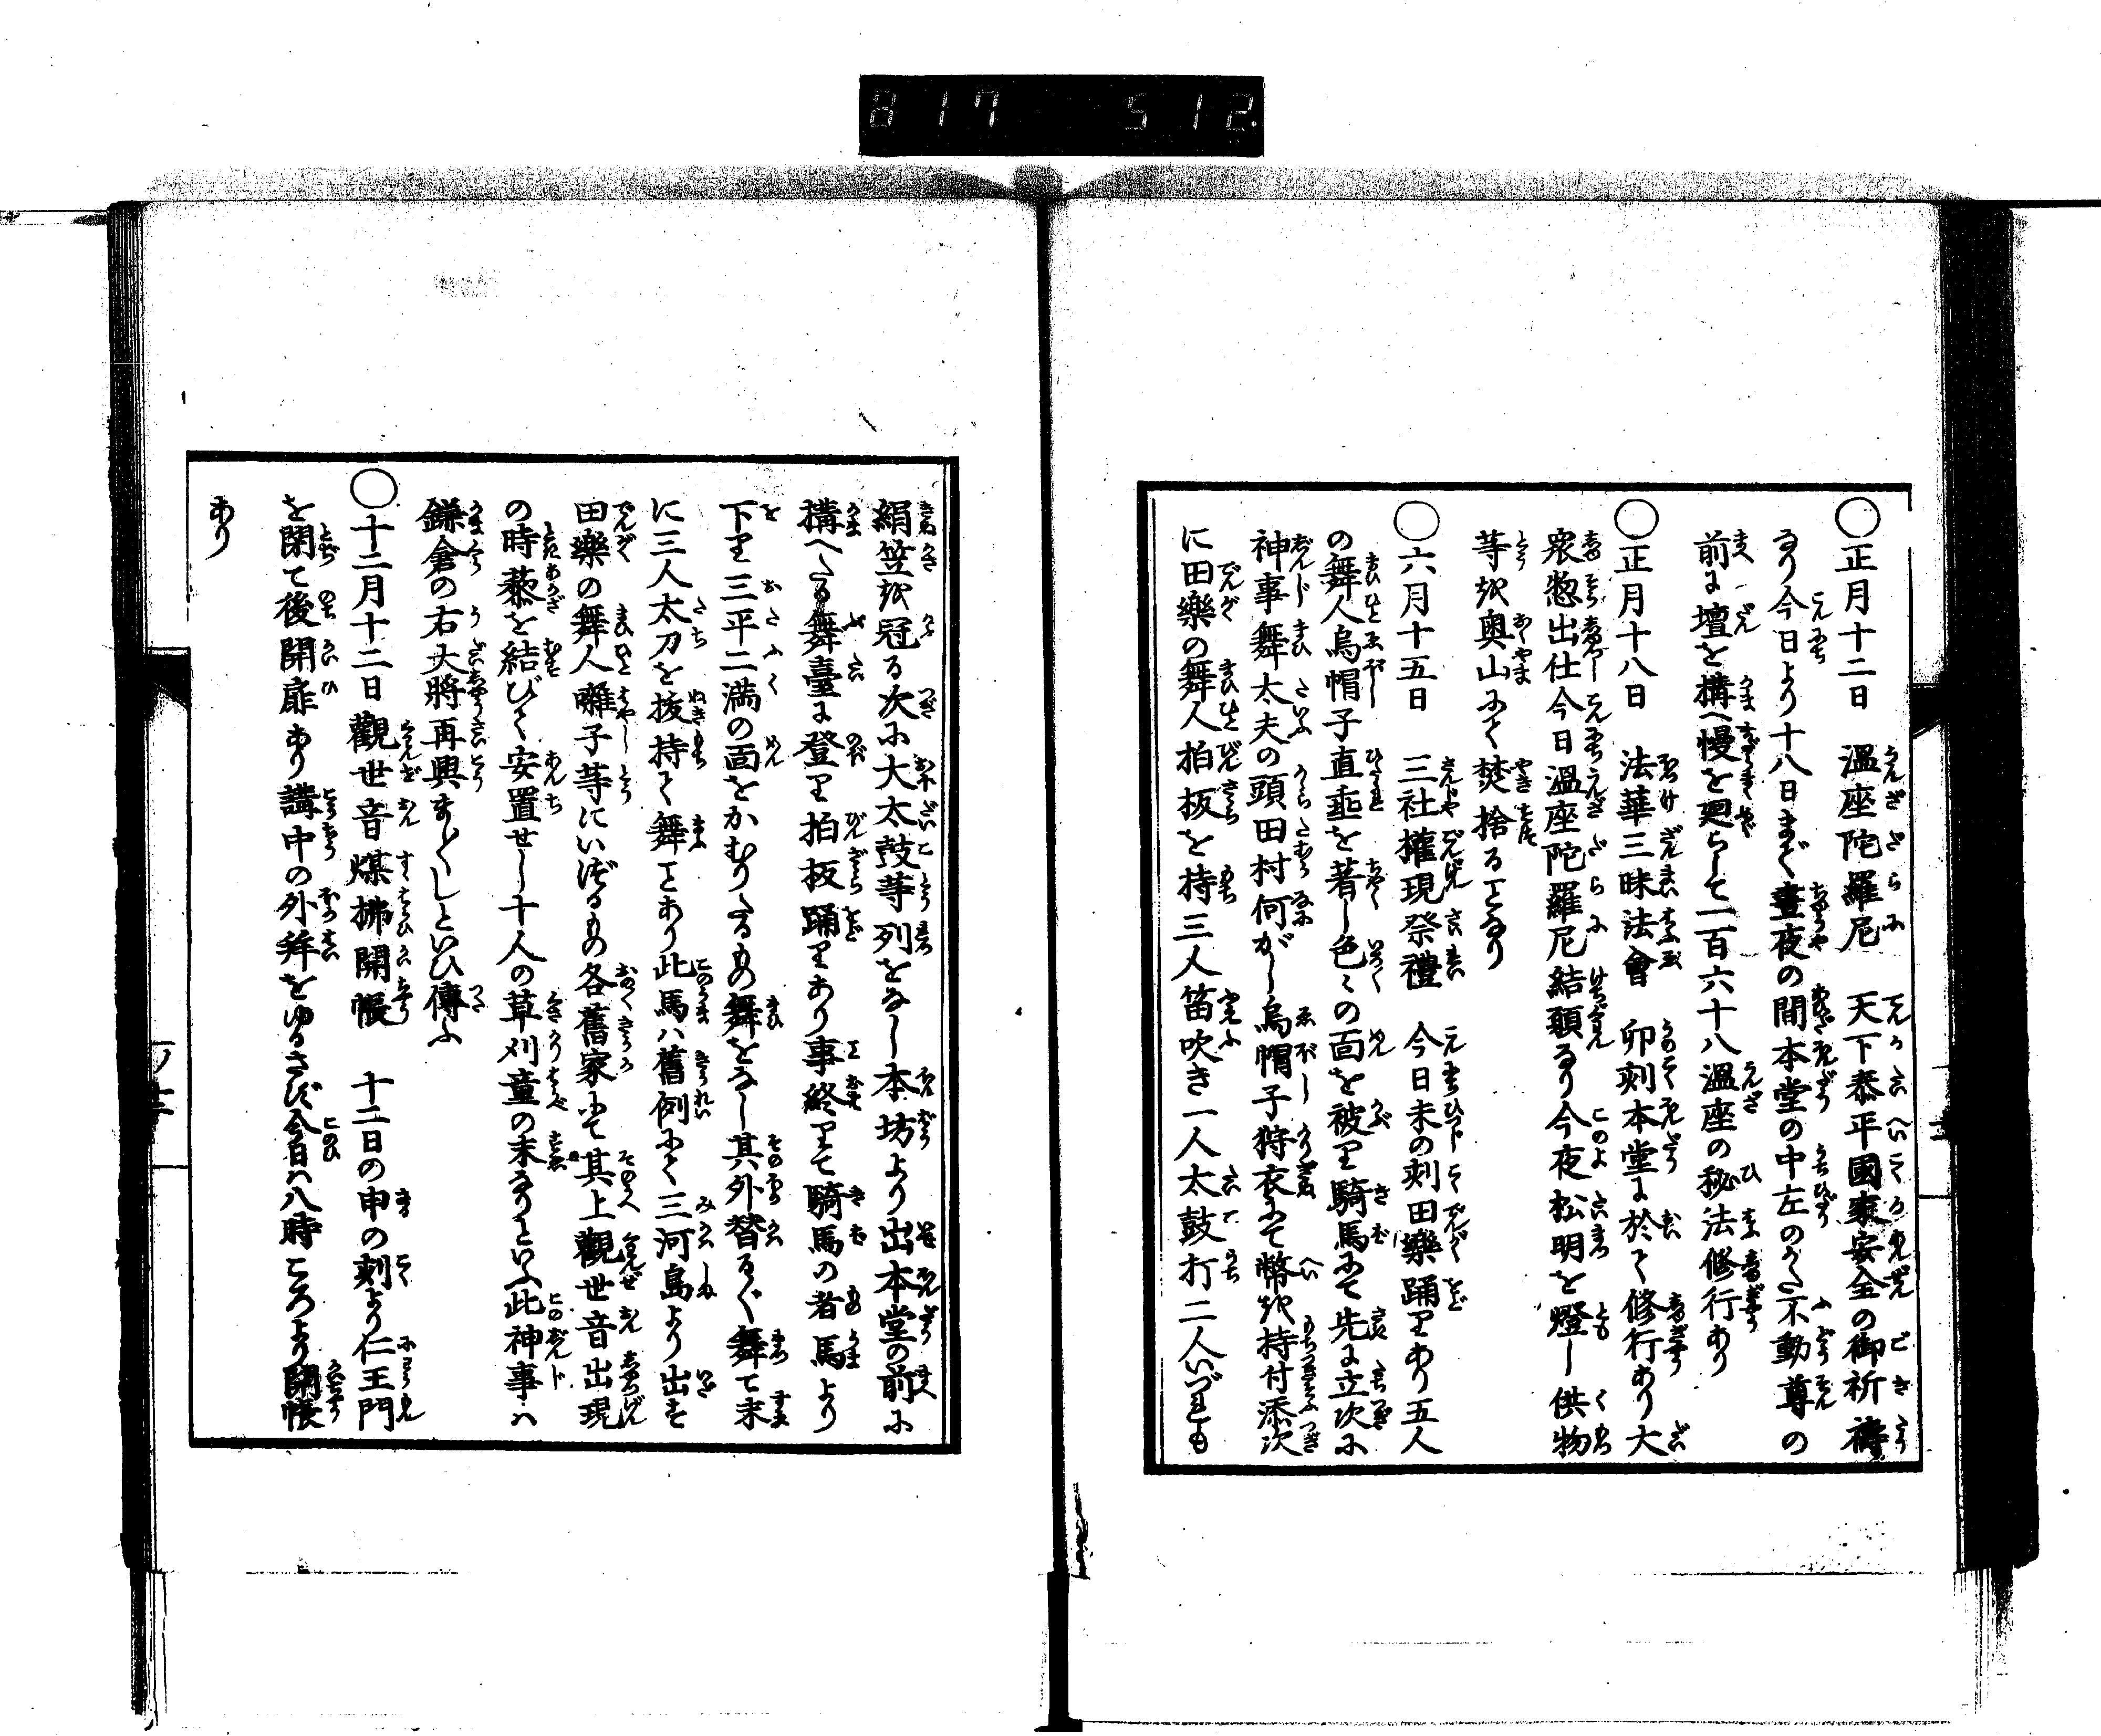 817 512
〇正月十二日 溫座陀羅尼 天下泰平國家安全の御祈禱
なり今日より十八日まで晝夜の間本堂の中左のかた不動尊の
前に壇を構へ幔を廻らして一百六十八溫座の秘法修行あり
〇正月十八日 法華三昧法會 卯刻本堂に於て修行あり大
衆惣出仕今日溫座陀羅尼結願なり今夜松明を燈し供物
等を奥山にて焚捨ることなり
〇六月十五日 三社權現祭禮 今日未の刻田樂踊りあり五人
の舞人烏帽子直垂を着し色〻の面を被り騎馬にて先に立次に
神事舞太夫の頭田村何がし烏帽子狩衣にて幣を持付添次
に田樂の舞人拍板を持三人笛吹き一人太鼓打二人いづれも
絹笠を冠る次に大太鼓等列をなし本坊より出本堂の前に
構へたる舞臺に登り拍板踊りあり事終りて騎馬の者馬より
下り三平二満の面をかむりたるもの舞をなし其外替る〲舞て末
に三人太刀を抜持て舞ことあり此馬ハ舊例にて三河島より出す
田樂の舞人囃子等にいづるもの各舊家にて其上觀世音出現
の時藜を結びて安置せし十人の草刈童の末なりといふ此神事ハ
鎌倉の右大將再興ましく〳〵しといひ傳ふ
〇十二月十二日觀世音煤拂開帳 十二日の申の刻より仁王門
を閉て後開扉あり講中の外拜をゆるさず今日ハ八時ころより開帳
あり